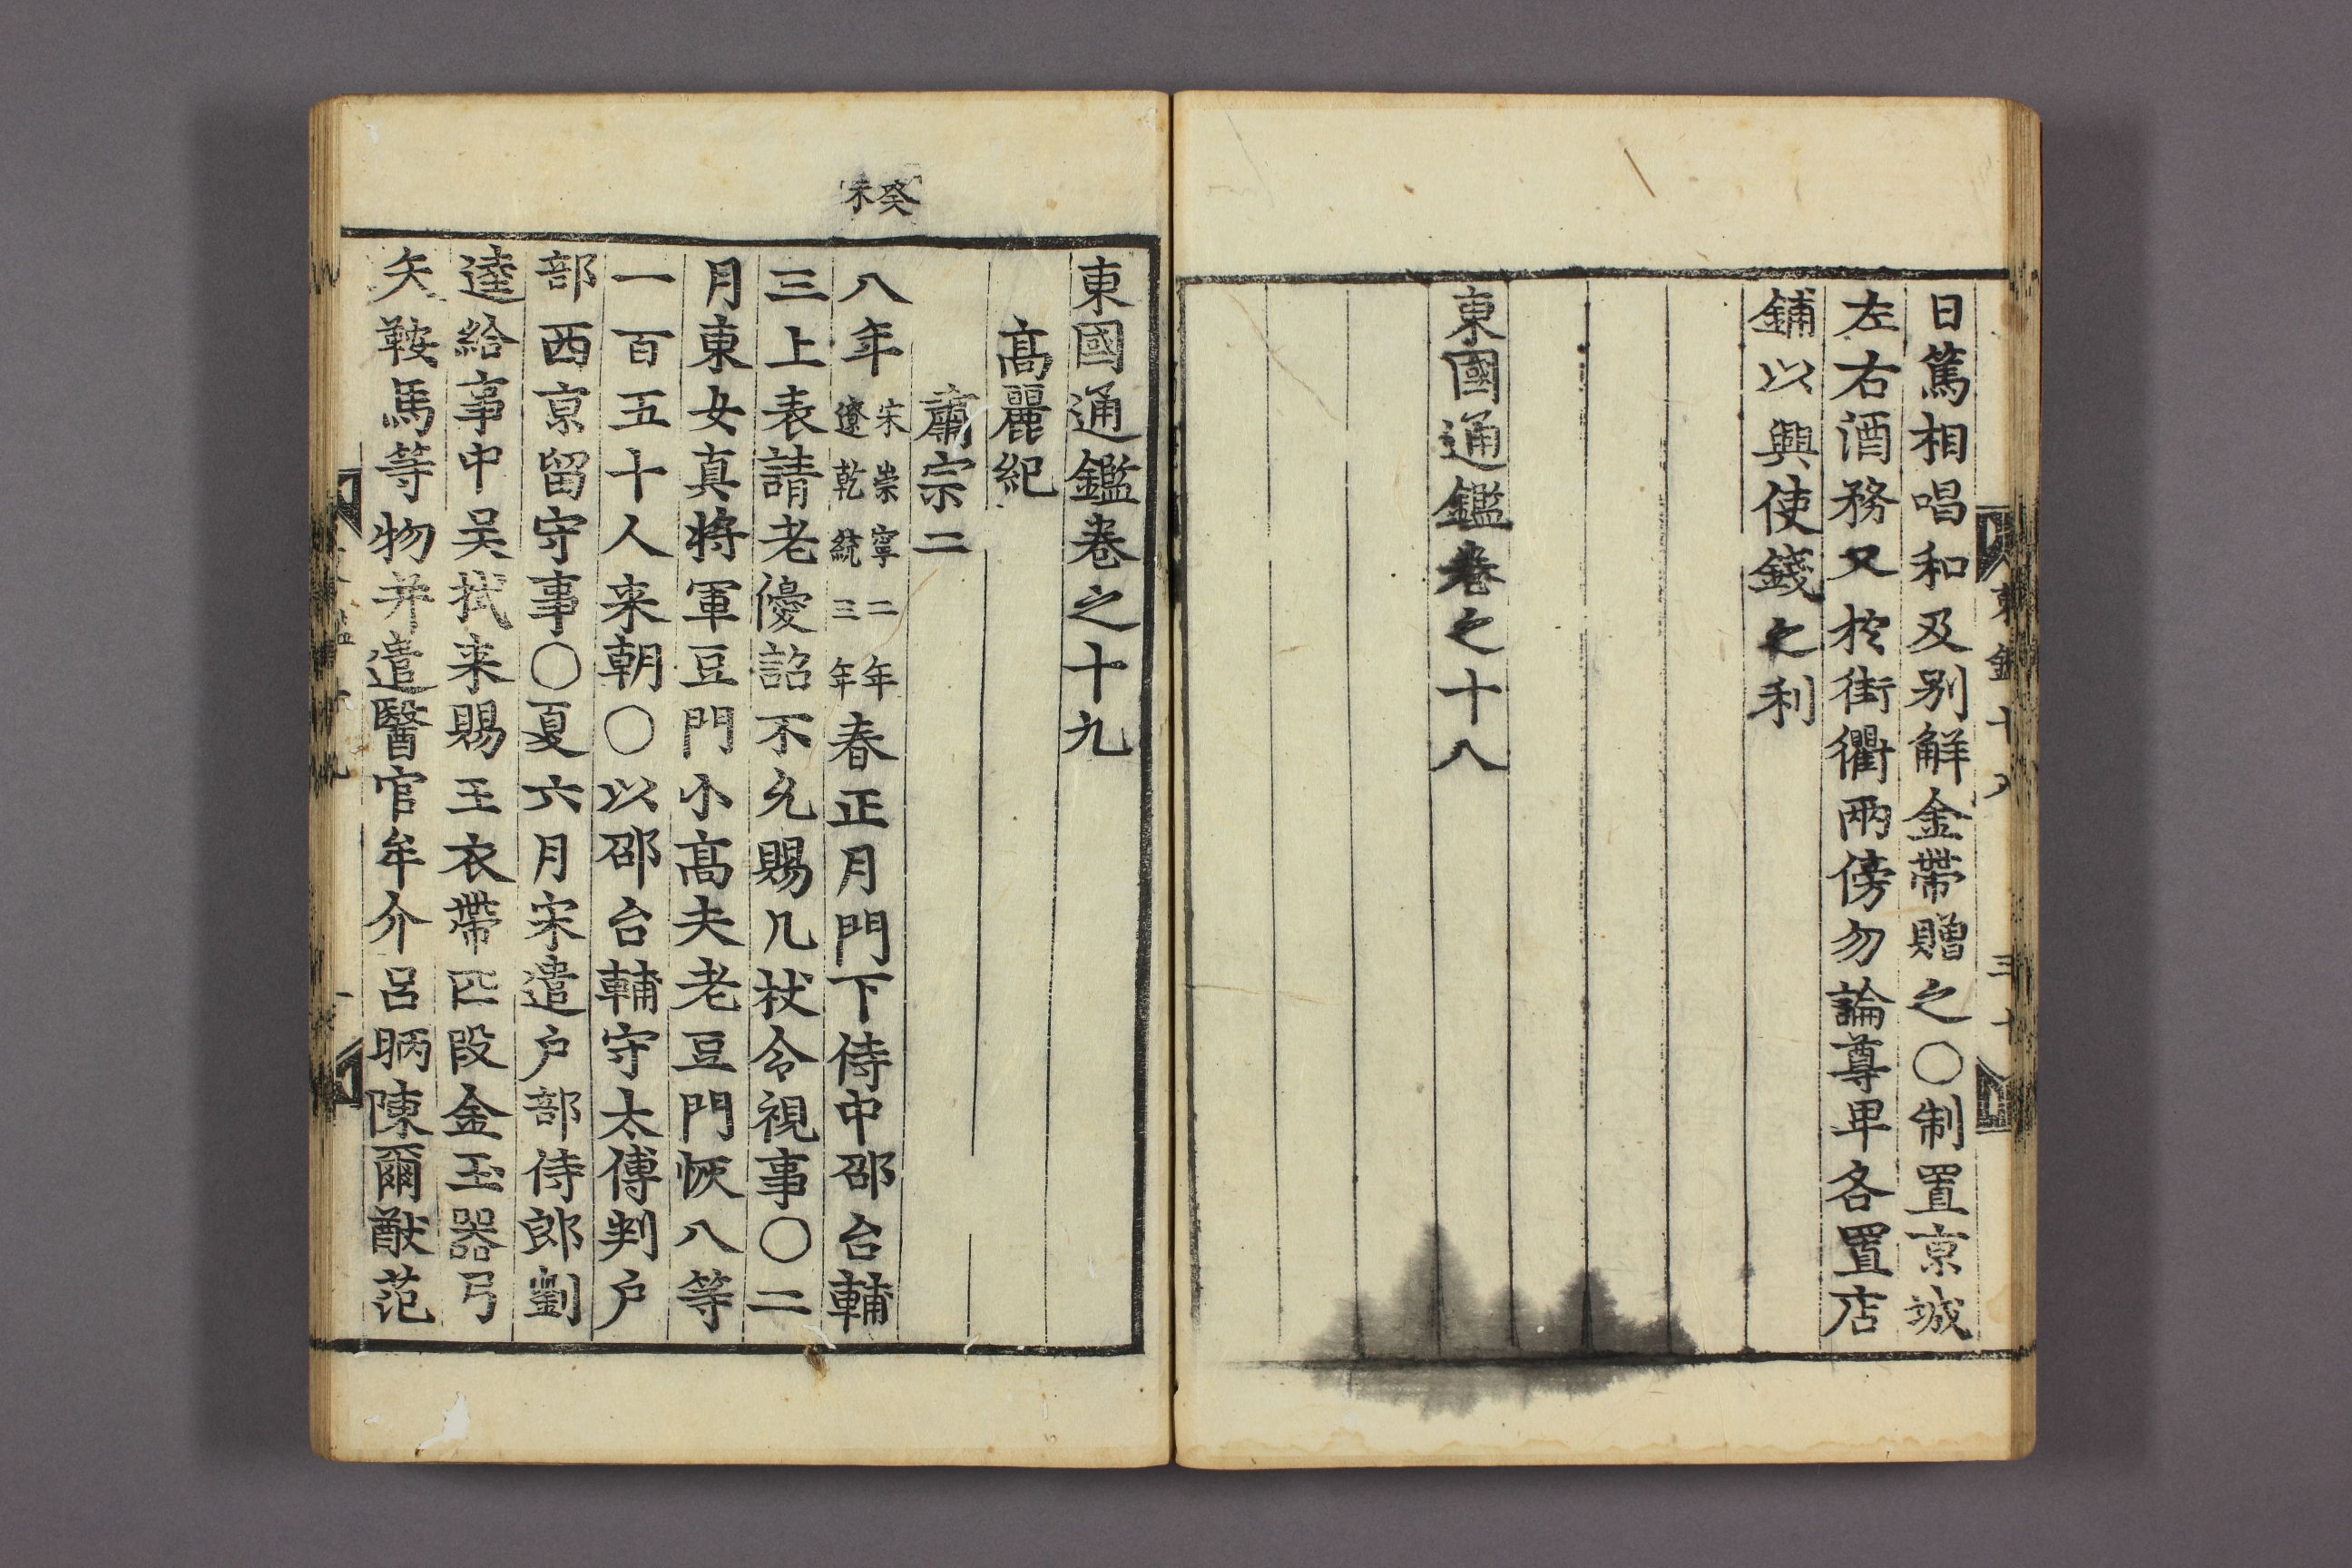 日篤相唱和及别解金帶贈之〇制置京城
左右酒務又於街衢兩傍勿論尊卑各置店
鋪以興使錢之利
東國通鑑卷之十八
東國通鑑卷之十九
高麗紀
肅宗二
癸未
八年宋崇寧二年遼乾統三年春正月門下侍中邵台輔
三上表請老優詔不允賜几杖令視事〇二
月東女真將軍豆門小高夫老豆門恢八等
一百五十人来朝〇以邵台輔守太傅判户
部西京留守事〇夏六月宋遣户部侍郎劉
逵給事中吴拭来賜王衣帶匹段金玉器弓
矢鞍馬等物并遣醫官牟介呂昞陳爾猷范